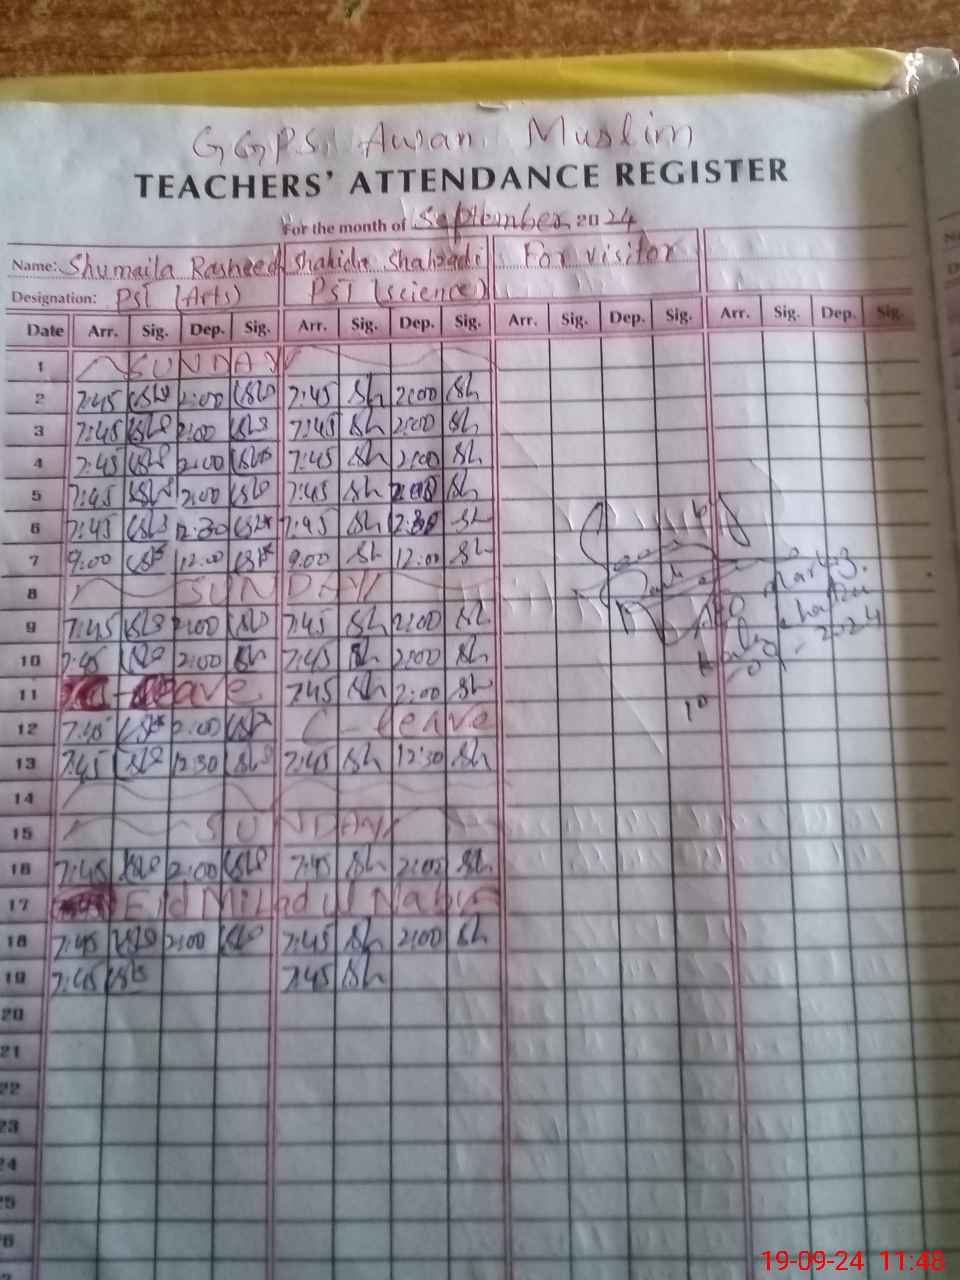 GGPS Awan Muslim
TEACHERS' ATTENDANCE REGISTER
For the month of September 2024
Name: Shumaila Rasheed Shahida Shahzadi For visitor
Designation: PST (Arts) PST (science)
Date Arr. Sig. Dep. Sig. Arr. Sig. Dep. Sig. Arr. Sig. Dep. Sig. Arr. Sig. Dep. Sig.
1 SUNDAY
2 7:45 2:00 7:45 Sh 2:00 Sh
3 7:45 2:00 7:45 Sh 2:00 Sh
4 7:45 2:00 7:45 Sh 2:00 Sh
5 7:45 2:00 7:45 Sh 2:00 Sh
6 7:45 12:30 7:45 Sh 12:30 Sh
7 9:00 12:00 9:00 Sh 12:00 Sh
8 SUNDAY
9 7:45 2:00 7:45 Sh 2:00 Sh
10 7:45 2:00 Sh 7:45 Sh 2:00 Sh
11 leave 7:45 Sh 2:00 Sh
12 7:45 2:00 C-leave
13 7:45 12:30 7:45 Sh 12:30 Sh
14
15 SUNDAY
16 7:45 2:00 7:45 Sh 2:00 Sh
17 Eid Milad ul Nabi
18 7:45 2:00 7:45 Sh 2:00 Sh
19 7:45 7:45 Sh
20
21
22
23
24
25
26
19-09-24 11:48